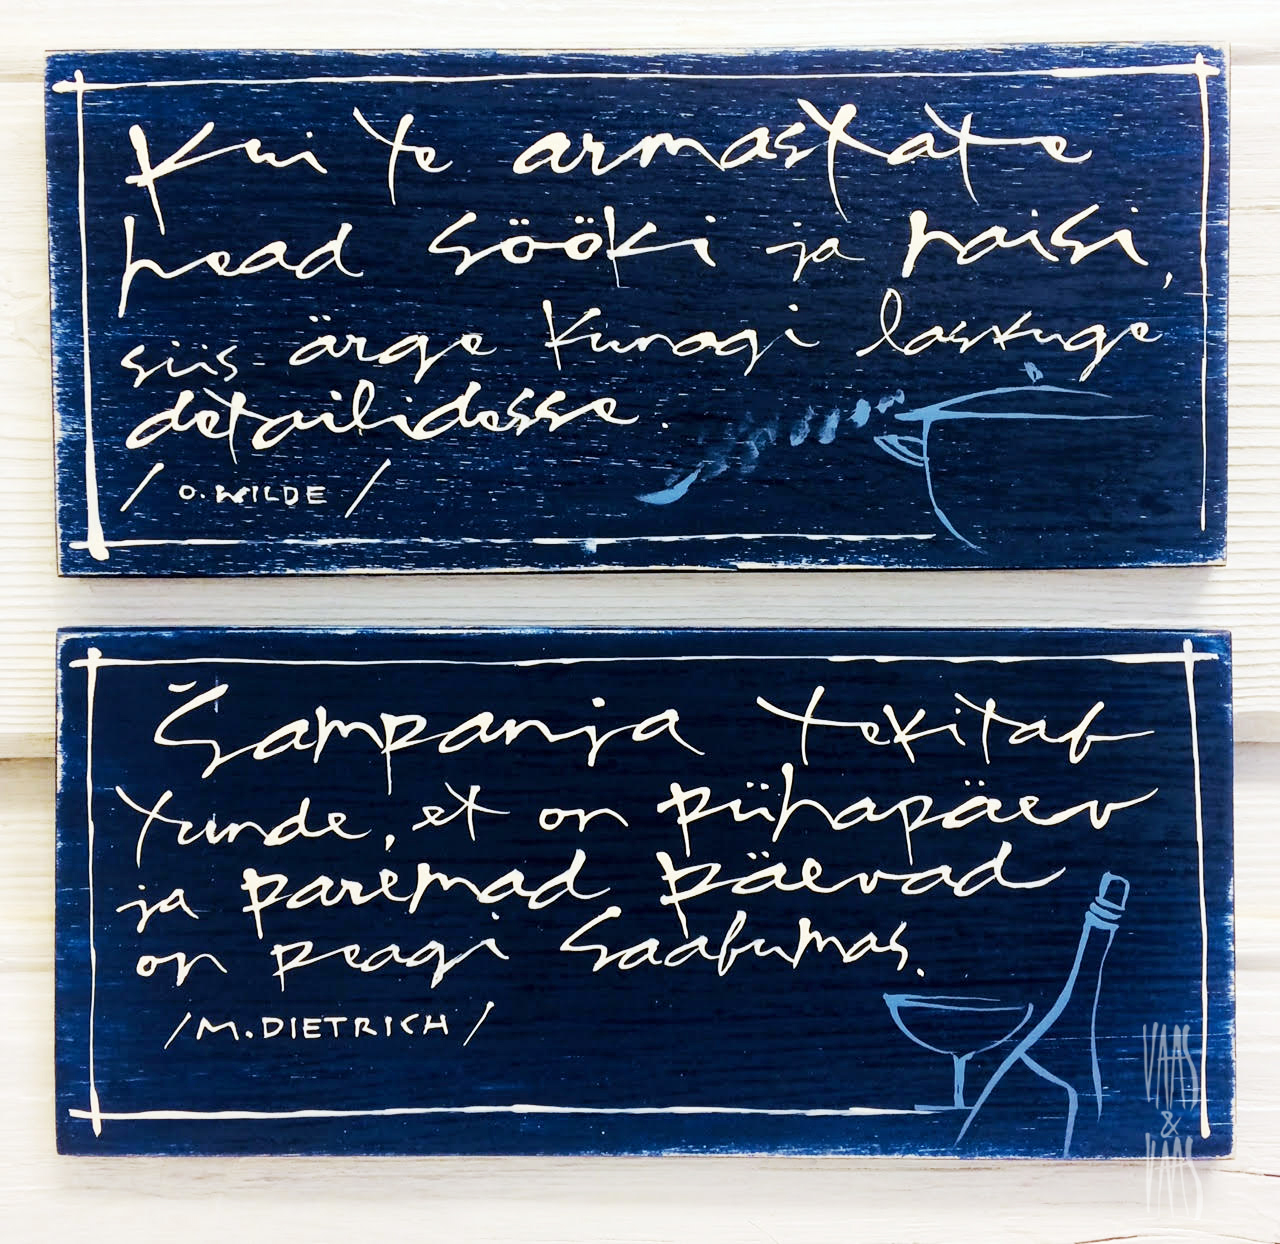 Kui te armastate
head sööki ja naisi,
siis ärge kunagi laskuge
detailidesse.
/ O. WILDE /
Šampanja tekitab
tunde, et on pühapäev
ja paremad päevad
on peagi saabumas.
/ M. DIETRICH /
VAAS
&
VAAS